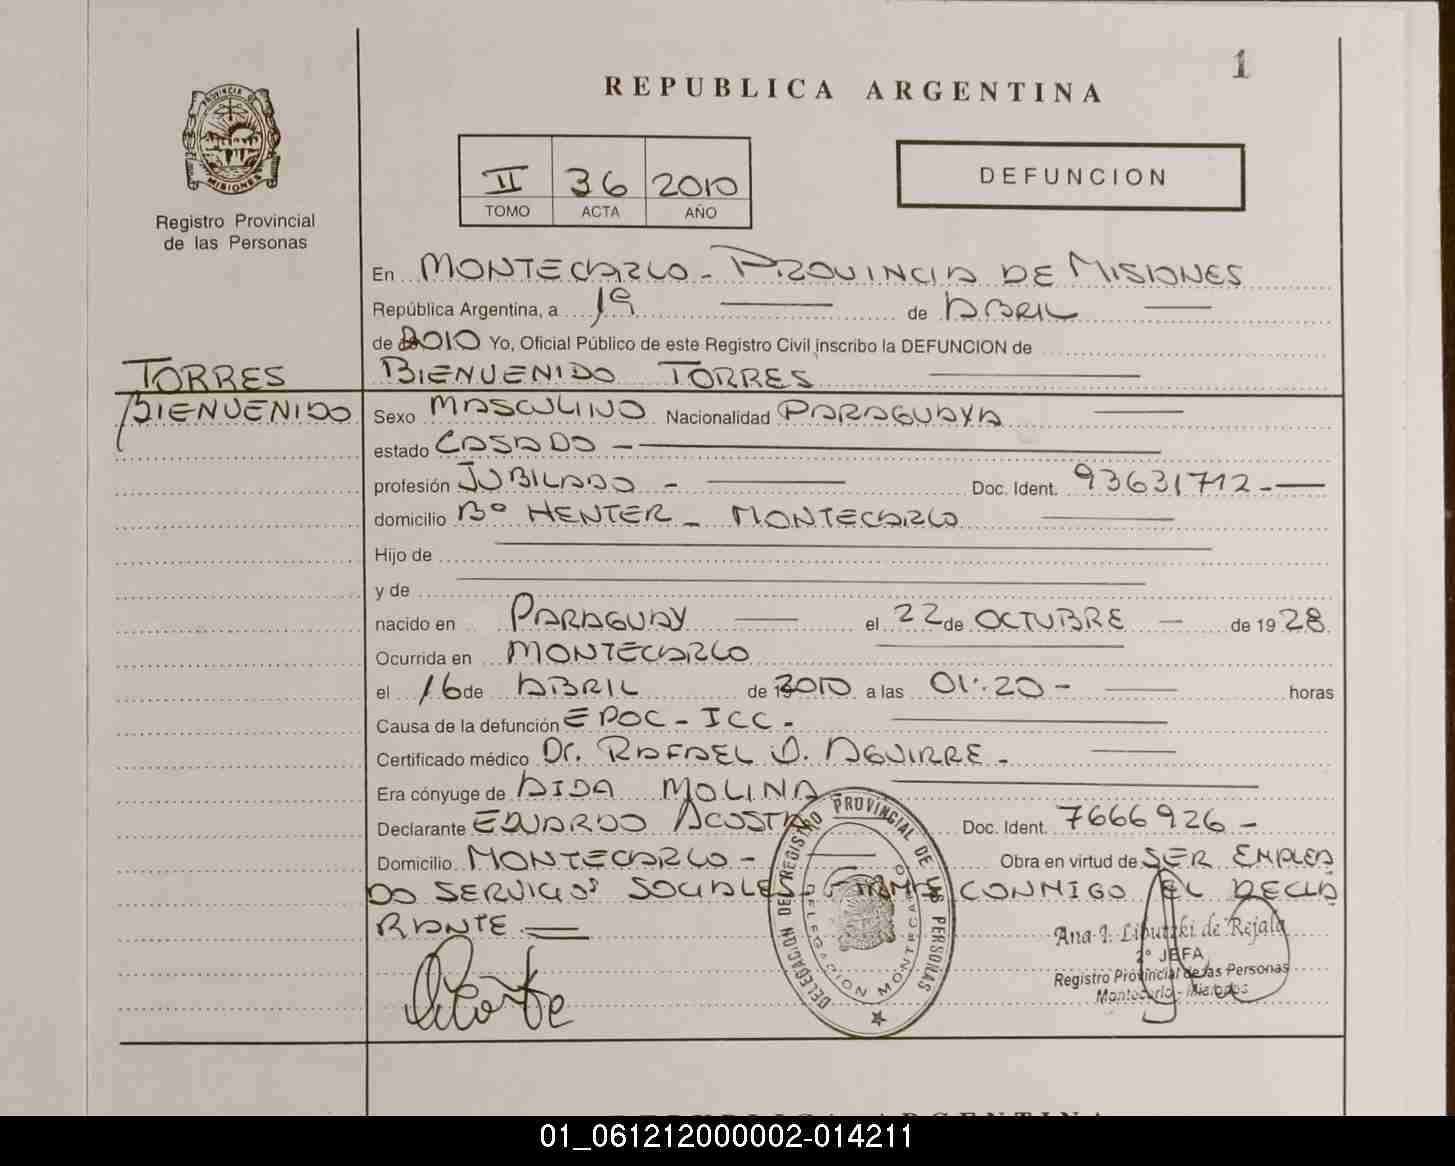 1
REPUBLICA ARGENTINA
PROVINCIA DE
MISIONES
Registro Provincial
de las Personas
II 36 2010
TOMO ACTA AÑO
DEFUNCION
En MONTECARLO - PROVINCIA DE MISIONES
República Argentina, a 19 de ABRIL
de 2010 Yo, Oficial Público de este Registro Civil inscribo la DEFUNCION de
TORRES
BIENVENIDO
BIENVENIDO TORRES
Sexo MASCULINO Nacionalidad PARAGUAYA
estado CASADO -
profesión JUBILADO - Doc. Ident. 93631712 -
domicilio Bº HENTER - MONTECARLO
Hijo de
y de
nacido en PARAGUAY el 22 de OCTUBRE - de 1928
Ocurrida en MONTECARLO
el 16 de ABRIL de 2010 a las 01:20 - horas
Causa de la defunción EPOC - ICC -
Certificado médico Dr. RAFAEL D. AGUIRRE -
Era cónyuge de AIDA MOLINA
Declarante EDUARDO ACOSTA Doc. Ident. 7666926 -
Domicilio MONTECARLO - Obra en virtud de SER EMPLEA
DO SERVICIOS SOCIALES - FIRMA CONMIGO EL DECLA
RANTE
DELEGACION DEL REGISTRO PROVINCIAL DE LAS PERSONAS
DELEGACION MONTECARLO
Ana I. de Rejala
2º JEFA
Registro Provincial de las Personas
Montecarlo - Misiones
REPUBLICA ARGENTINA
01_061212000002-014211